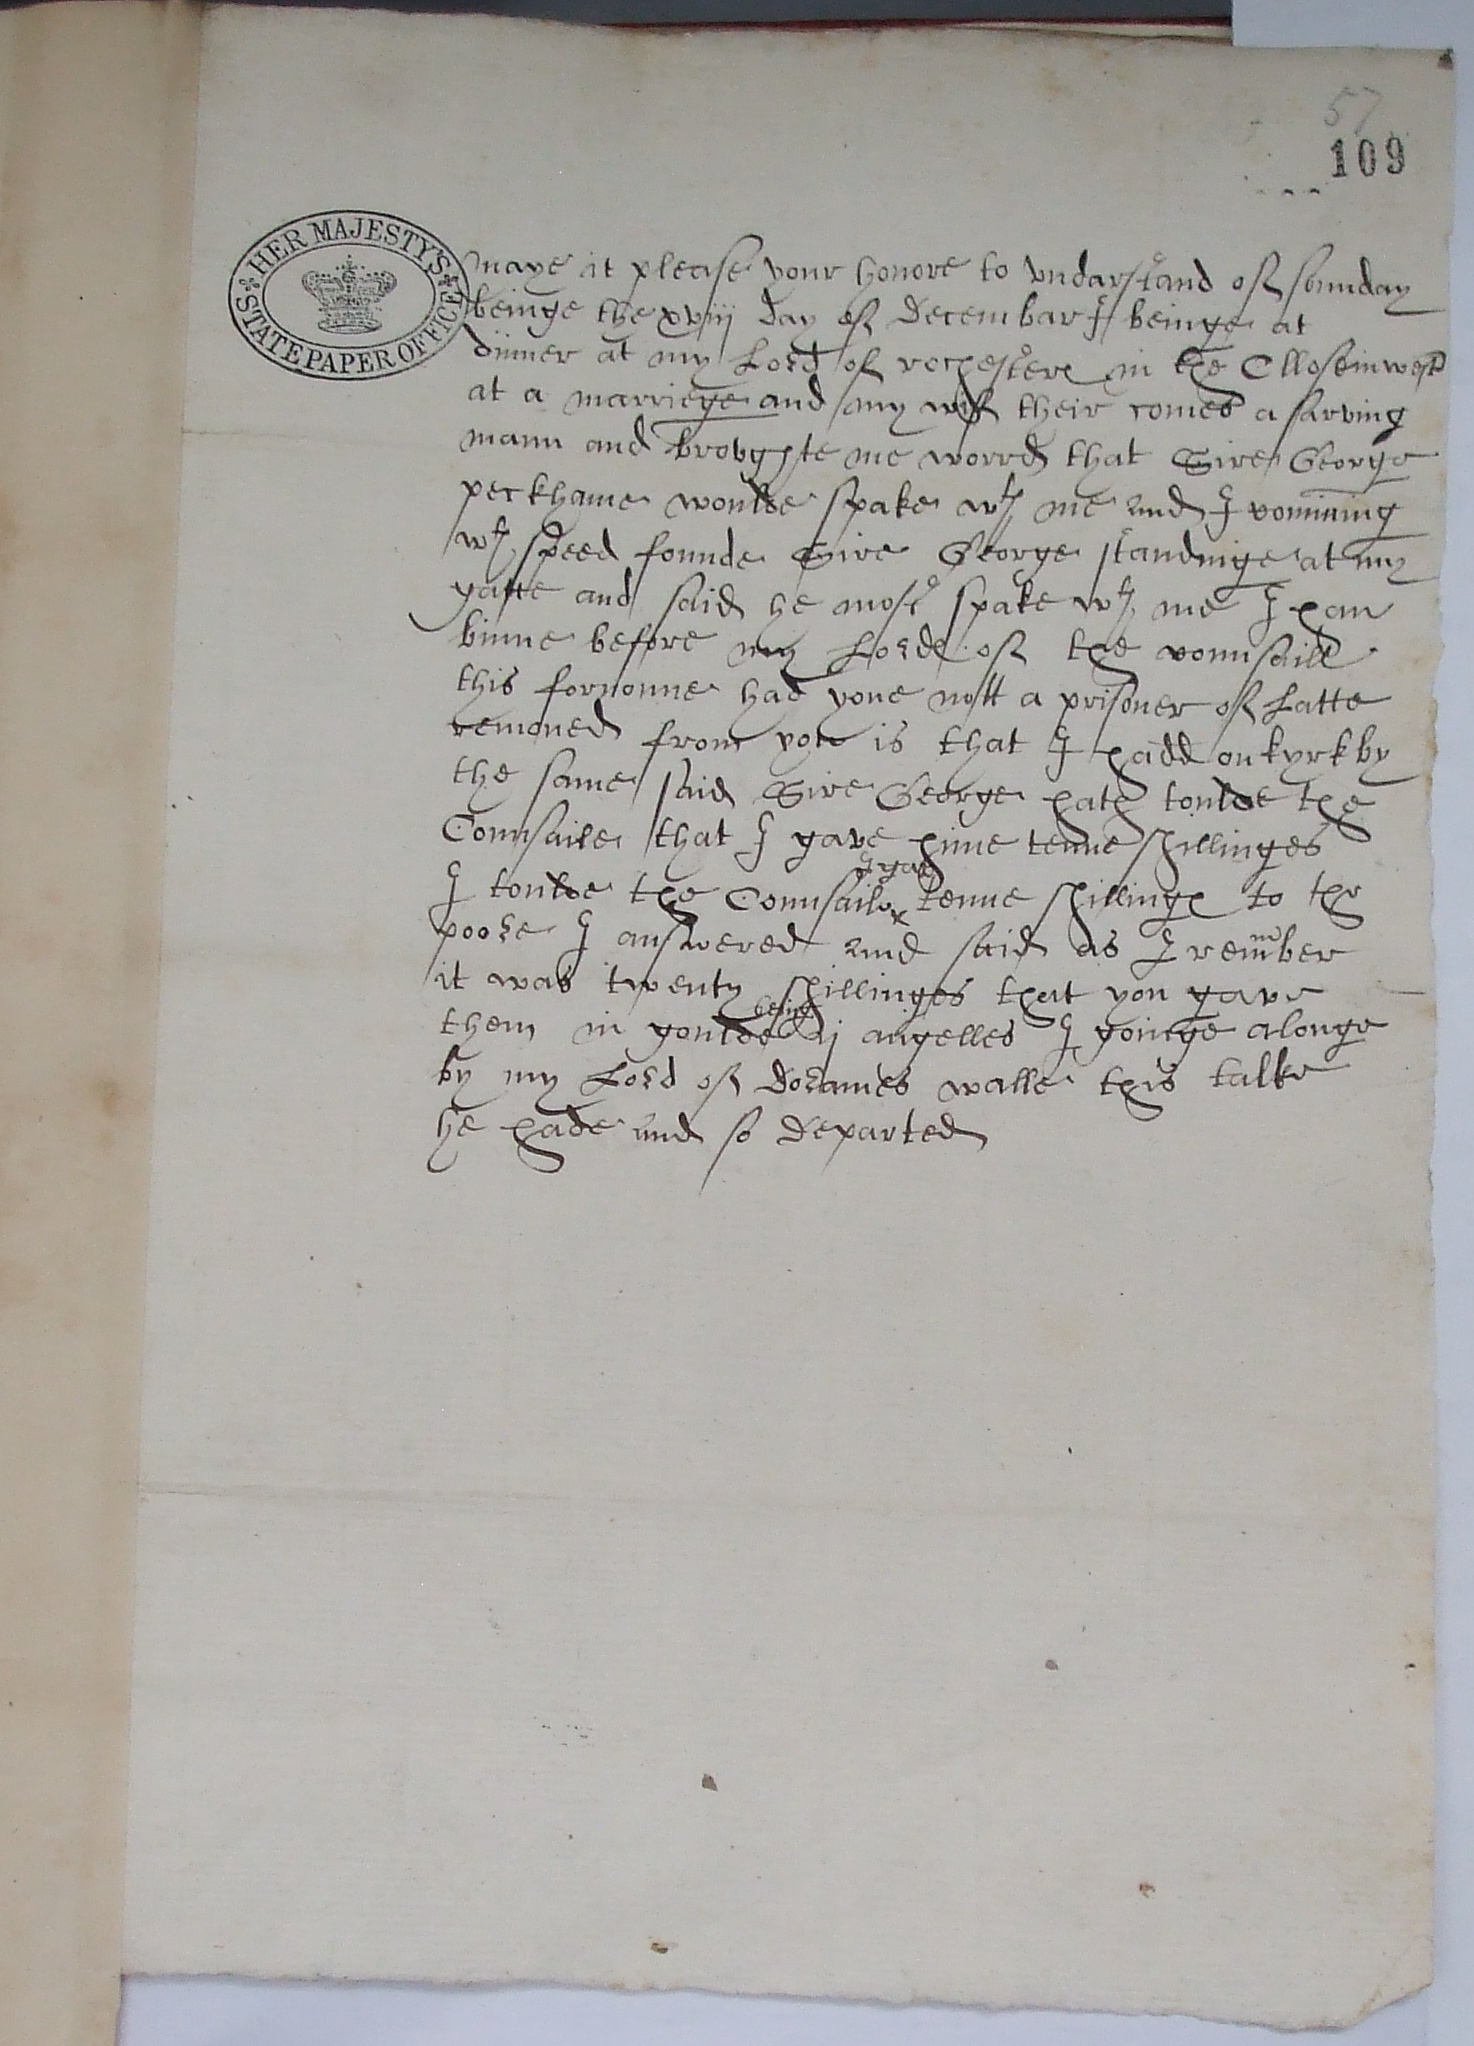 57
109
HER MAJESTY'S STATE PAPER OFFICE
maye it please your honore to vndarstand of sounday
beinge the xviij day of Decembar I beinge at
dinner at my Lord of rochester in the Cllose in west
at a marriege and my wif their comes a sarving
mann and brovghte me worrd that Sire George
peckhame woulde spake wth me and I comming
wth speed founde Sire George standinge at my
gatte and said he most spake wth me I hau
binne before my Lordes of the counsaill
this fornonne had youe nott a prisoner of Latte
removed from you is that I hadd on kyrkby
the same said Sire George hath toulde the
Counsaile that I gave hime tenne shillinges
I toulde the Counsaile I gave tenne shillinges to the
poore I answered and said as I remember
it was twenty shillinges that you gave
them in goulde being ij angelles I goinge alonge
by my Lord of Dorames walle this talke
he hade and so departed